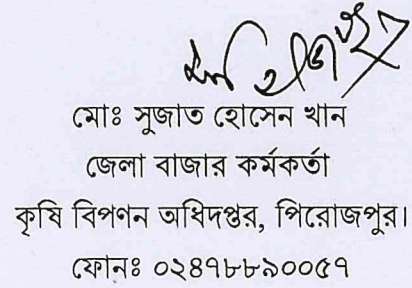 মোঃ সুজাত হোসেন খান
জেলা বাজার কর্মকর্তা
কৃষি বিপণন অধিদপ্তর, পিরোজপুর।
ফোনঃ ০২৪৭৮৮৯০০৫৭